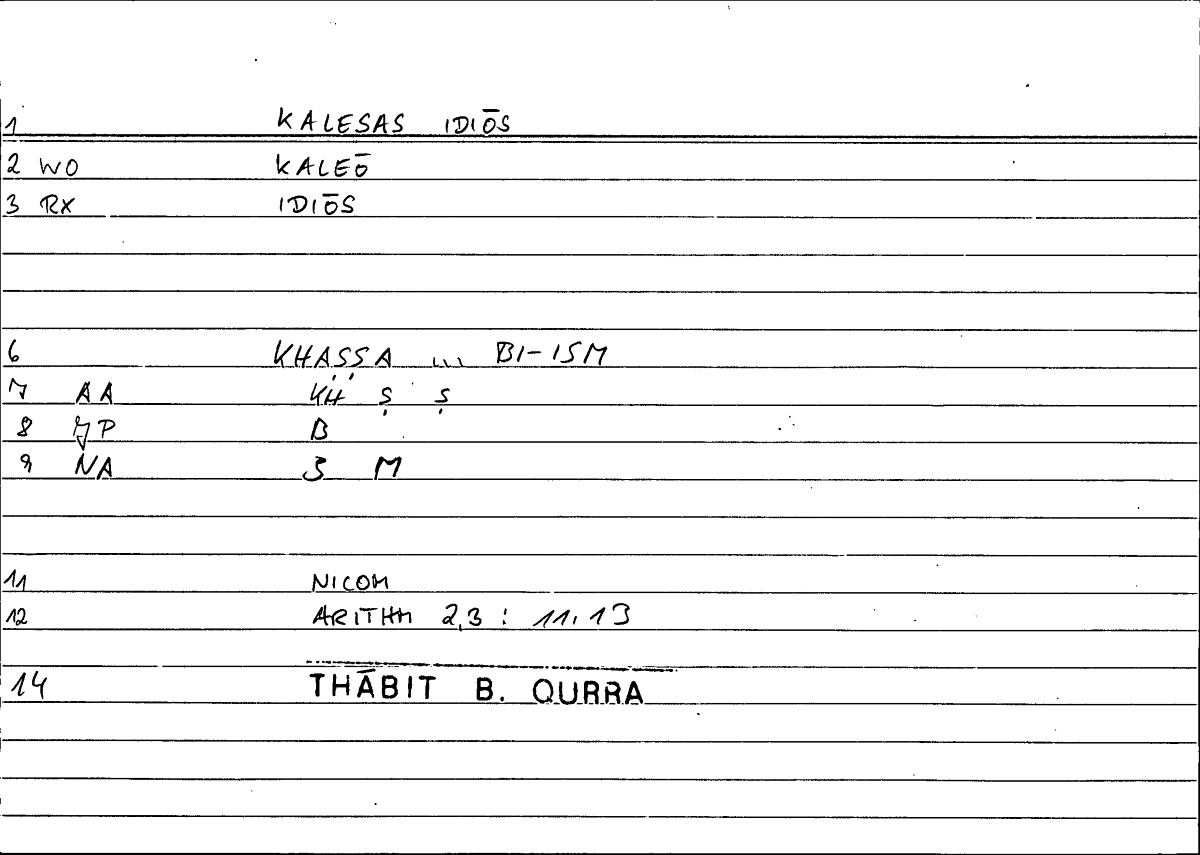 1 KALESAS IDIŌS
2 WO KALEŌ
3 RX IDIŌS
6 KHAṢṢA ... BI-ISM
7 AA KH Ṣ Ṣ
8 JP B
9 NA 3 M
11 NICOM
12 ARITHM 2,3 : 11.13
14 THĀBIT B. QURRA